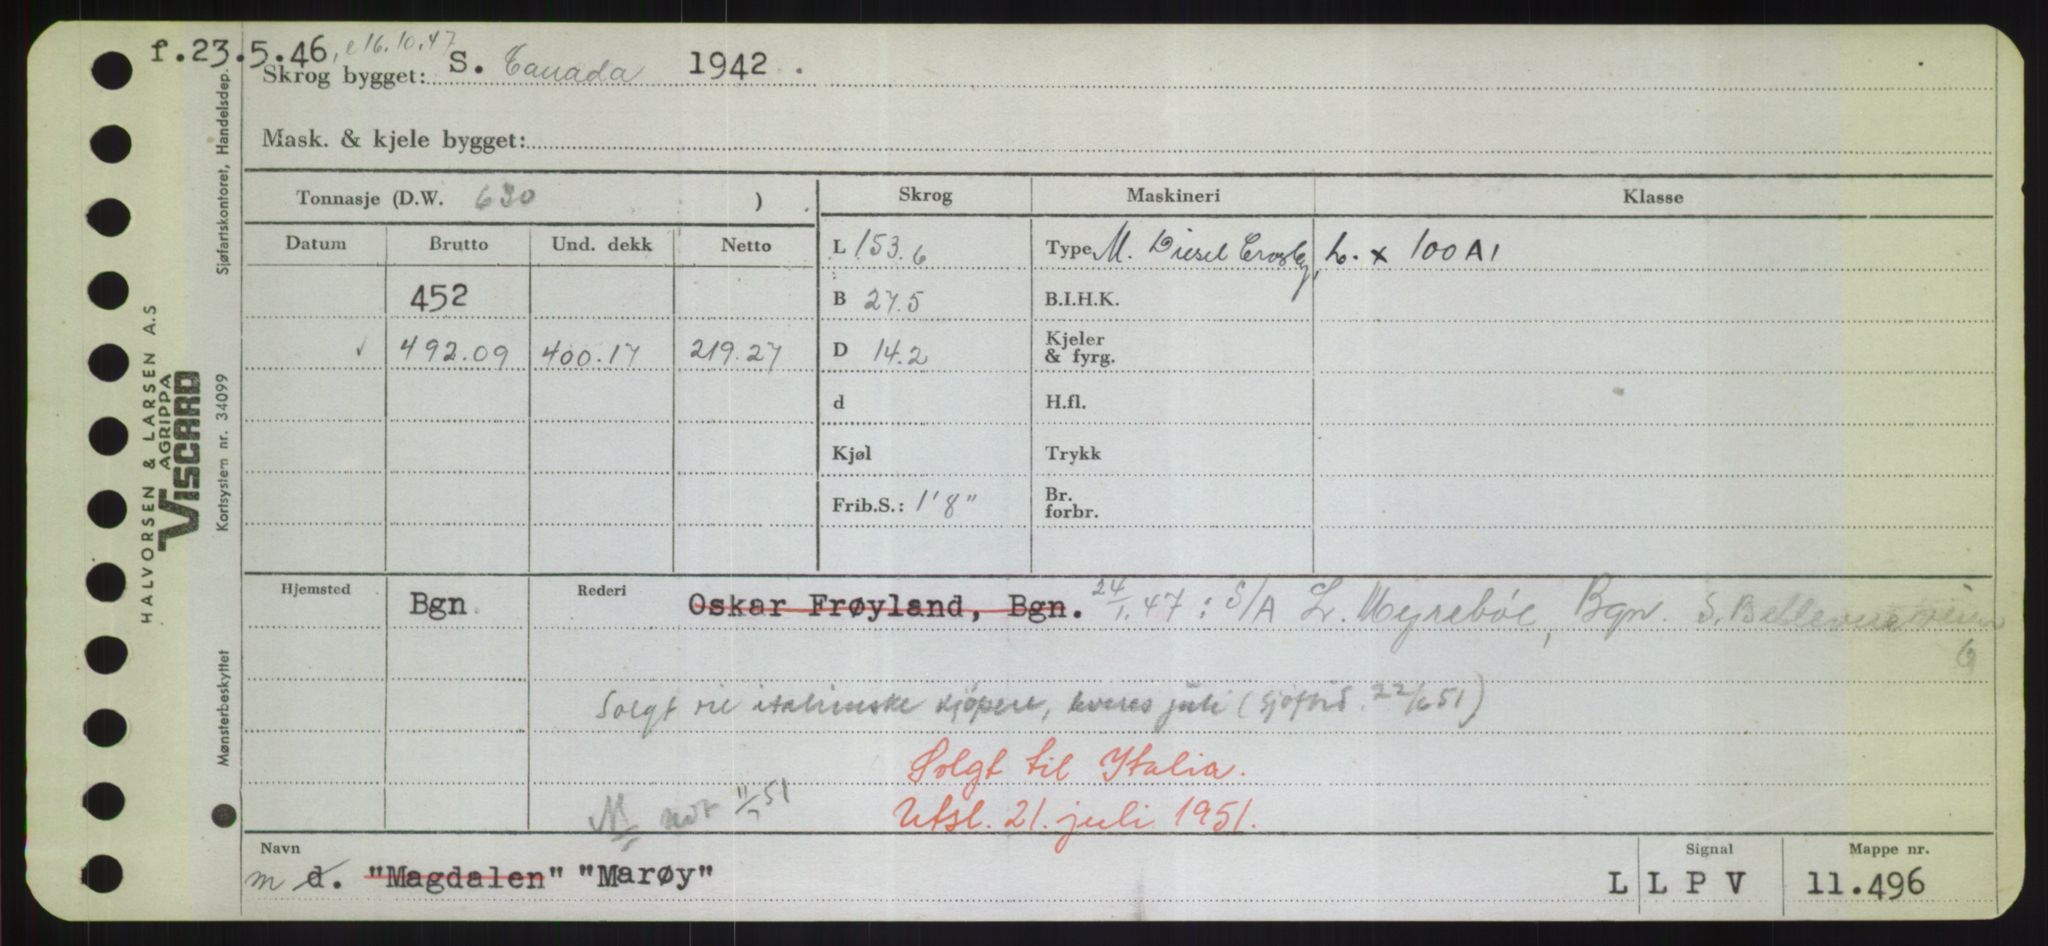 f.23.5.46, e 16.10.47
Skrog bygget: S. Canada 1942.
Mask. & kjele bygget:
Tonnasje (D.W. 630 )
Skrog Maskineri Klasse
Datum Brutto Und. dekk Netto
L 153.6 Type M. Diesel Crosley, L. x 100 A1
452
B 27.5 B.I.H.K.
✓ 492.09 400.17 219.27
D 14.2 Kjeler & fyrg.
d H.fl.
Kjøl Trykk
Frib.S.: 1'8" Br. forbr.
Hjemsted Bgn Rederi Oskar Frøyland, Bgn. 24/1.47: S/A L. Myrebøe, Bgn. S.
6
Solgt til italienske kjøpere, leveres juli (Sjøfrid. 22/6 51)
Solgt til Italia.
M not 11/7 51
Utsl. 21. juli 1951.
Navn Signal Mappe nr.
m d. "Magdalen" "Marøy" L L P V 11.496
HALVORSEN & LARSEN A.S
AGRIPPA
VISCARD
Sjøfartskontoret, Handelsdep.
Kortsystem nr. 34099
Mønsterbeskyttet